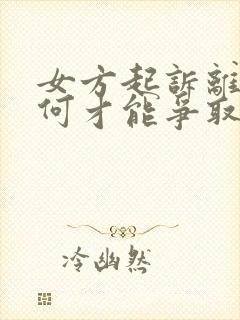 女方起訴離
何才能爭取
冷幽然